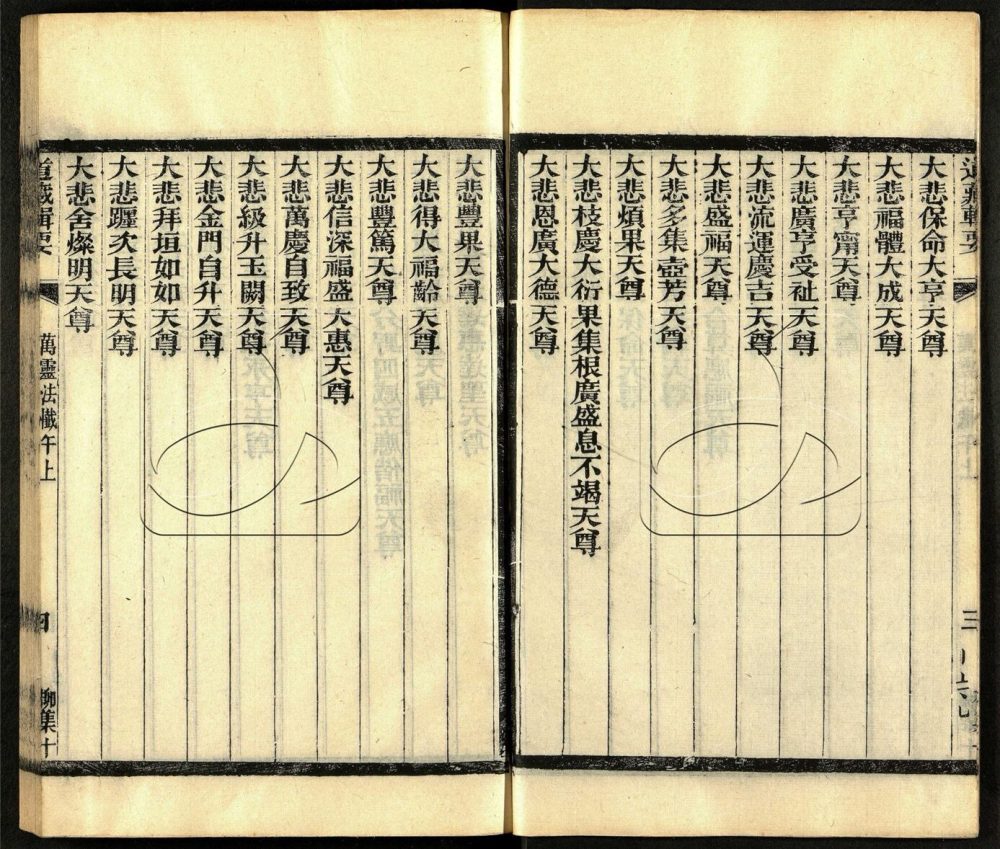 大悲保命大亨天尊
大悲福體大成天尊
大悲亨甯天尊
大悲廣亨受祉天尊
大悲流運慶吉天尊
大悲盛福天尊
大悲多集壺芳天尊
大悲煩果天尊
大悲枝慶大衍果集根廣盛息不竭天尊
大悲恩廣大德天尊
大悲豐果天尊
大悲得大福齡天尊
大悲豐篤天尊
大悲信深福盛大惠天尊
大悲萬慶自致天尊
大悲級升玉闕天尊
大悲金門自升天尊
大悲拜垣如如天尊
大悲躔次長明天尊
大悲舍燦明天尊
道藏輯要
萬靈法懺午上
四
柳集十